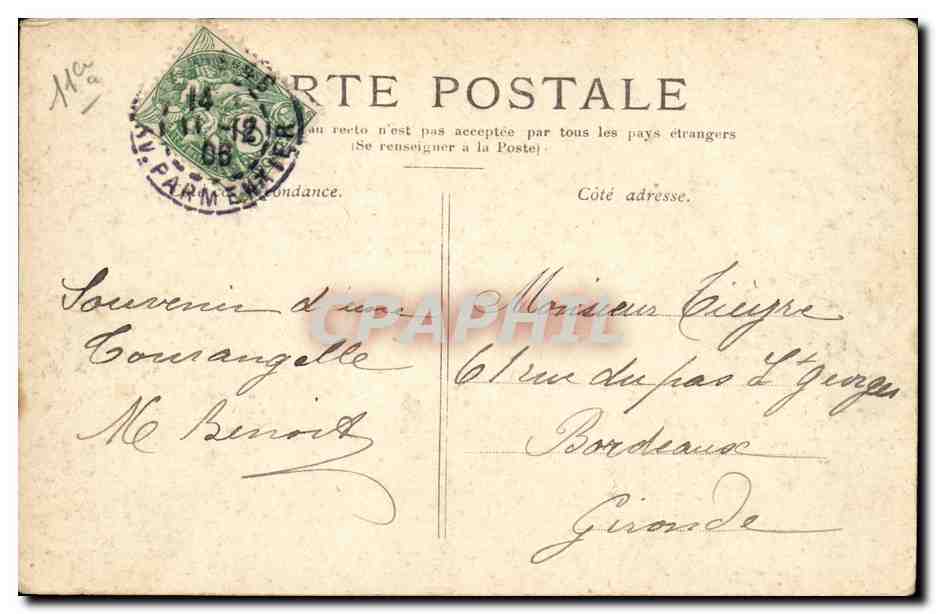 11 a
CARTE POSTALE
au recto n'est pas acceptée par tous les pays étrangers
(Se renseigner a la Poste)
14
11 -12
06
AV. PARMENTIER
ondance.
Côté adresse.
Souvenir d'une
Tourangelle
M Benoit
Monsieur Tièyre
61 rue du pas St Georges
Bordeaux
Gironde
CPAPHIL